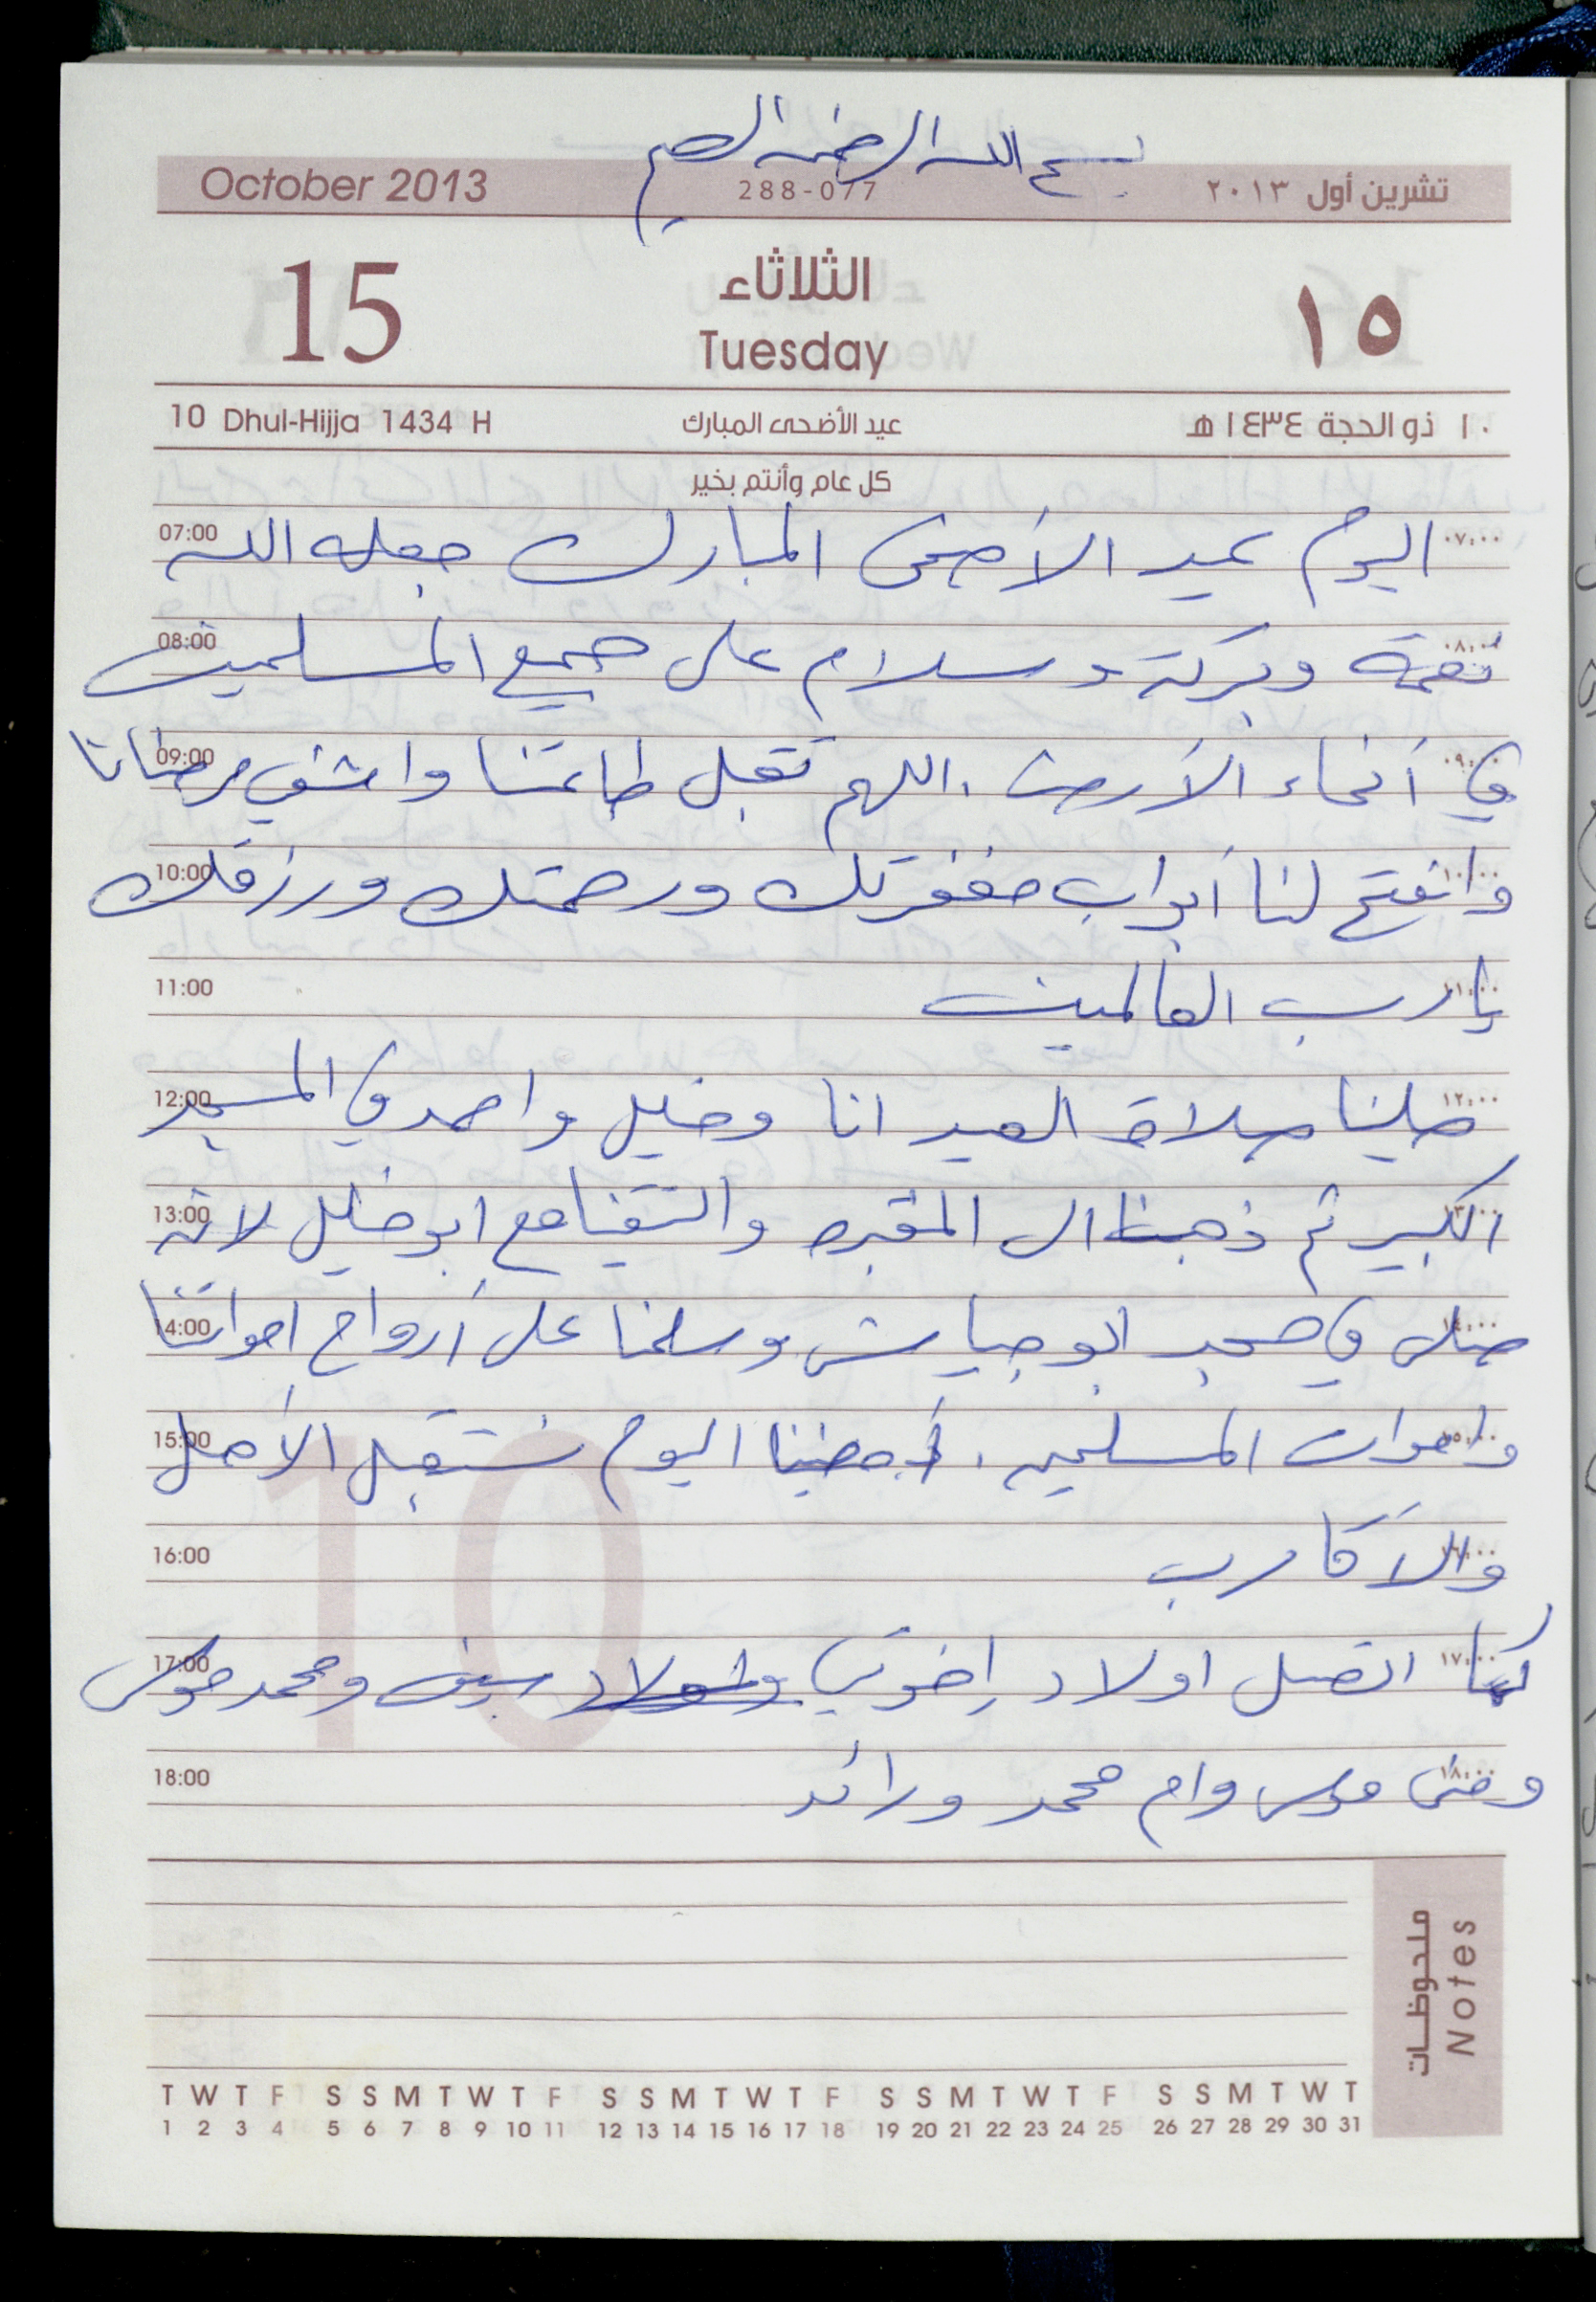 بسم الله الرحمن الرحيم
October 2013 288-077 تشرين أول ٢٠١٣
15 الثلاثاء ١٥
Tuesday
10 Dhul-Hijja 1434 H عيد الأضحى المبارك ١٠ ذو الحجة ١٤٣٤ هـ
كل عام وأنتم بخير
07:00 اليوم عيد الأضحى المبارك جعله الله ٠٧:٠٠
08:00 نعمة وبركة وسلام على جميع المسلمين ٠٨:٠٠
09:00 في أنحاء الأرض . اللهم تقبل طاعتنا واشفي مرضانا ٠٩:٠٠
10:00 وافتح لنا أبواب مغفرتك ورحمتك ورزقك ١٠:٠٠
11:00 يا رب العالمين ١١:٠٠
12:00 صلينا صلاة العيد انا وخليل واحمد في المسجد ١٢:٠٠
13:00 الكبير ثم ذهبنا الى المقبره والتقينا مع ابو خليل لانه ١٣:٠٠
14:00 صلى في مسجد ابو جياش وسلمنا على أرواح امواتنا ١٤:٠٠
15:00 واموات المسلمين . أمضينا اليوم نستقبل الأهل ١٥:٠٠
16:00 والأقارب ١٦:٠٠
17:00 كما اتصل اولاد إخوتي واولاد سيف ومحمد موسى ١٧:٠٠
18:00 ومنى موسى وام محمد ورائد ١٨:٠٠
10
ملحوظات
Notes
T W T F S S M T W T F S S M T W T F S S M T W T F S S M T W T
1 2 3 4 5 6 7 8 9 10 11 12 13 14 15 16 17 18 19 20 21 22 23 24 25 26 27 28 29 30 31